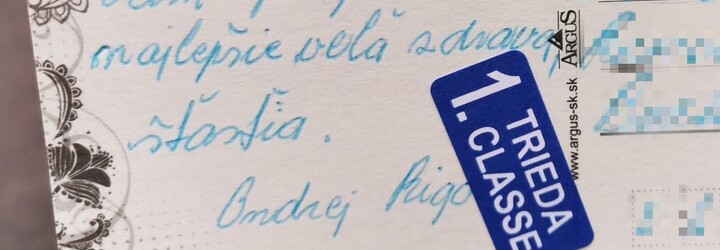 najlepšie veľa zdravia,
šťastia.
Ondrej
1. TRIEDA
CLASSE
ARGUS
www.argus-sk.sk